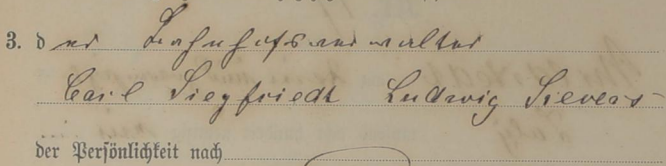 3. der Bahnhofsverwalter
Carl Siegfried Ludwig Sievers
der Persönlichkeit nach